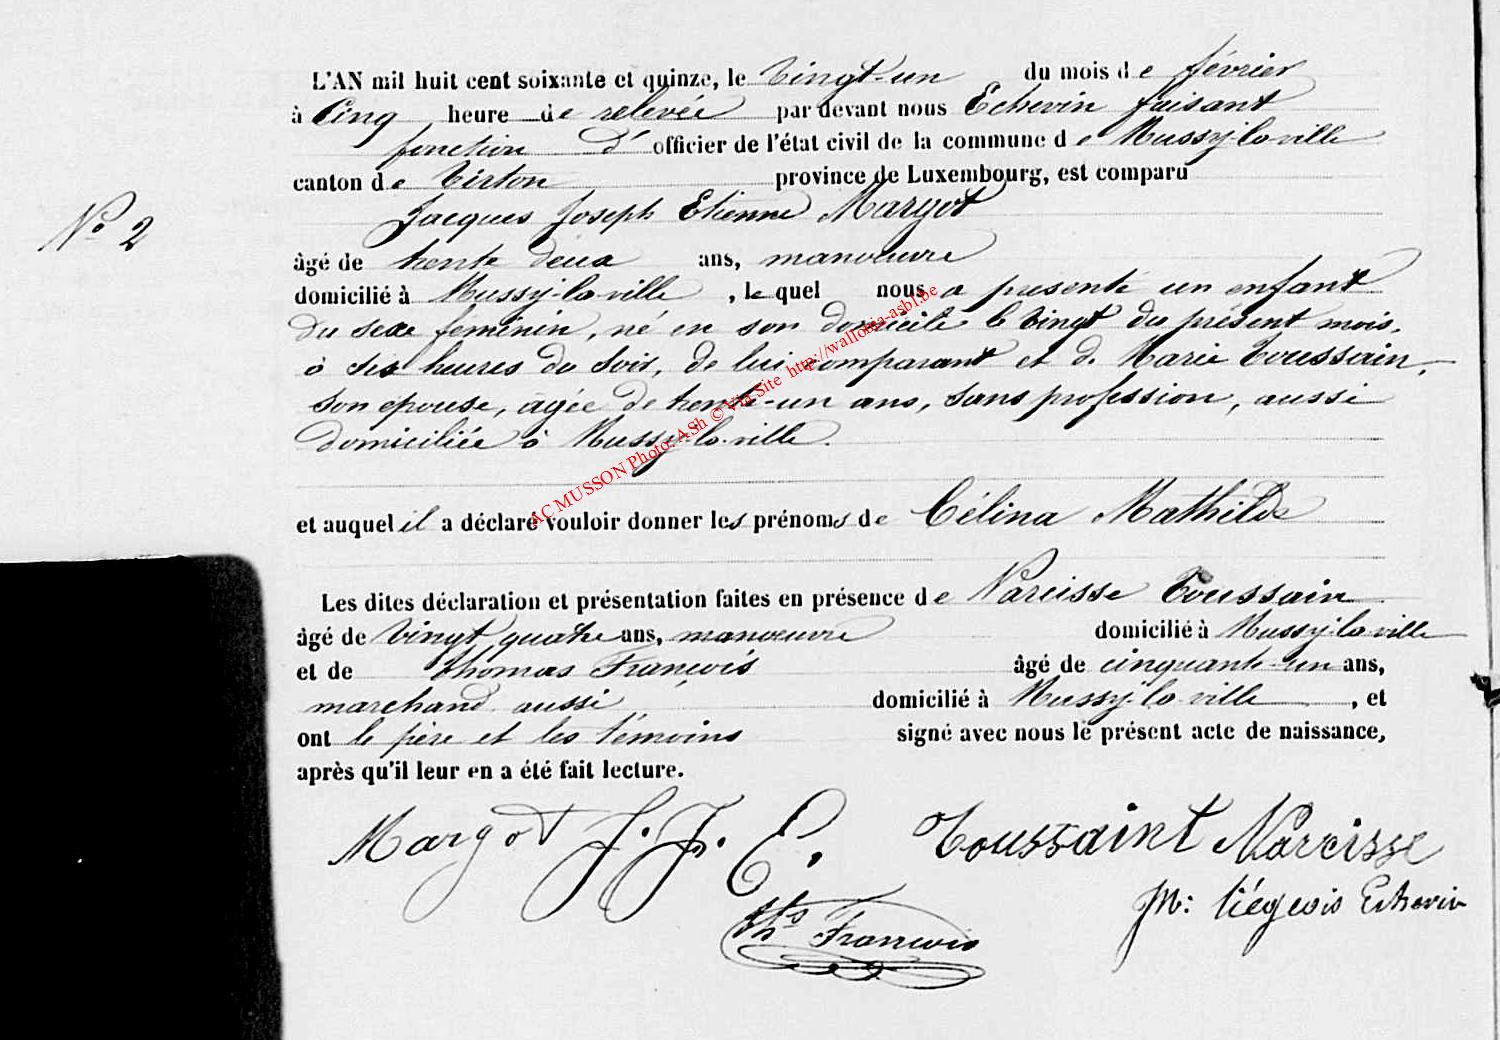 L'AN mil huit cent soixante et quinze, le Vingt-un du mois de février
à Cinq heure de relevée par devant nous Echevin faisant
fonction d' officier de l'état civil de la commune de Mussy-la-ville
canton de Virton province de Luxembourg, est comparu
Jacques Joseph Etienne Margot
N° 2
âgé de trente deux ans, manœuvre
domicilié à Mussy-la-ville, lequel nous a présenté un enfant
du sexe féminin, né en son domicile le vingt du présent mois,
à six heures du soir, de lui comparant et de Marie Toussain,
son epouse, agée de trente-un ans, sans profession, aussi
domiciliée à Mussy-la-ville.
AC MUSSON Photo: ASh © Via Site http://wallonia-asbl.be
et auquel il a déclaré vouloir donner les prénoms de Célina Mathilde
Les dites déclaration et présentation faites en présence de Narcisse Toussain
âgé de Vingt quatre ans, manœuvre domicilié à Mussy-la-ville
et de Thomas François âgé de cinquante-un ans,
marchand aussi domicilié à Mussy-la-ville, et
ont le père et les témoins signé avec nous le présent acte de naissance,
après qu'il leur en a été fait lecture.
Margot J. J. E. Toussaint Narcisse
M: Liégeois Echevin
Ths François